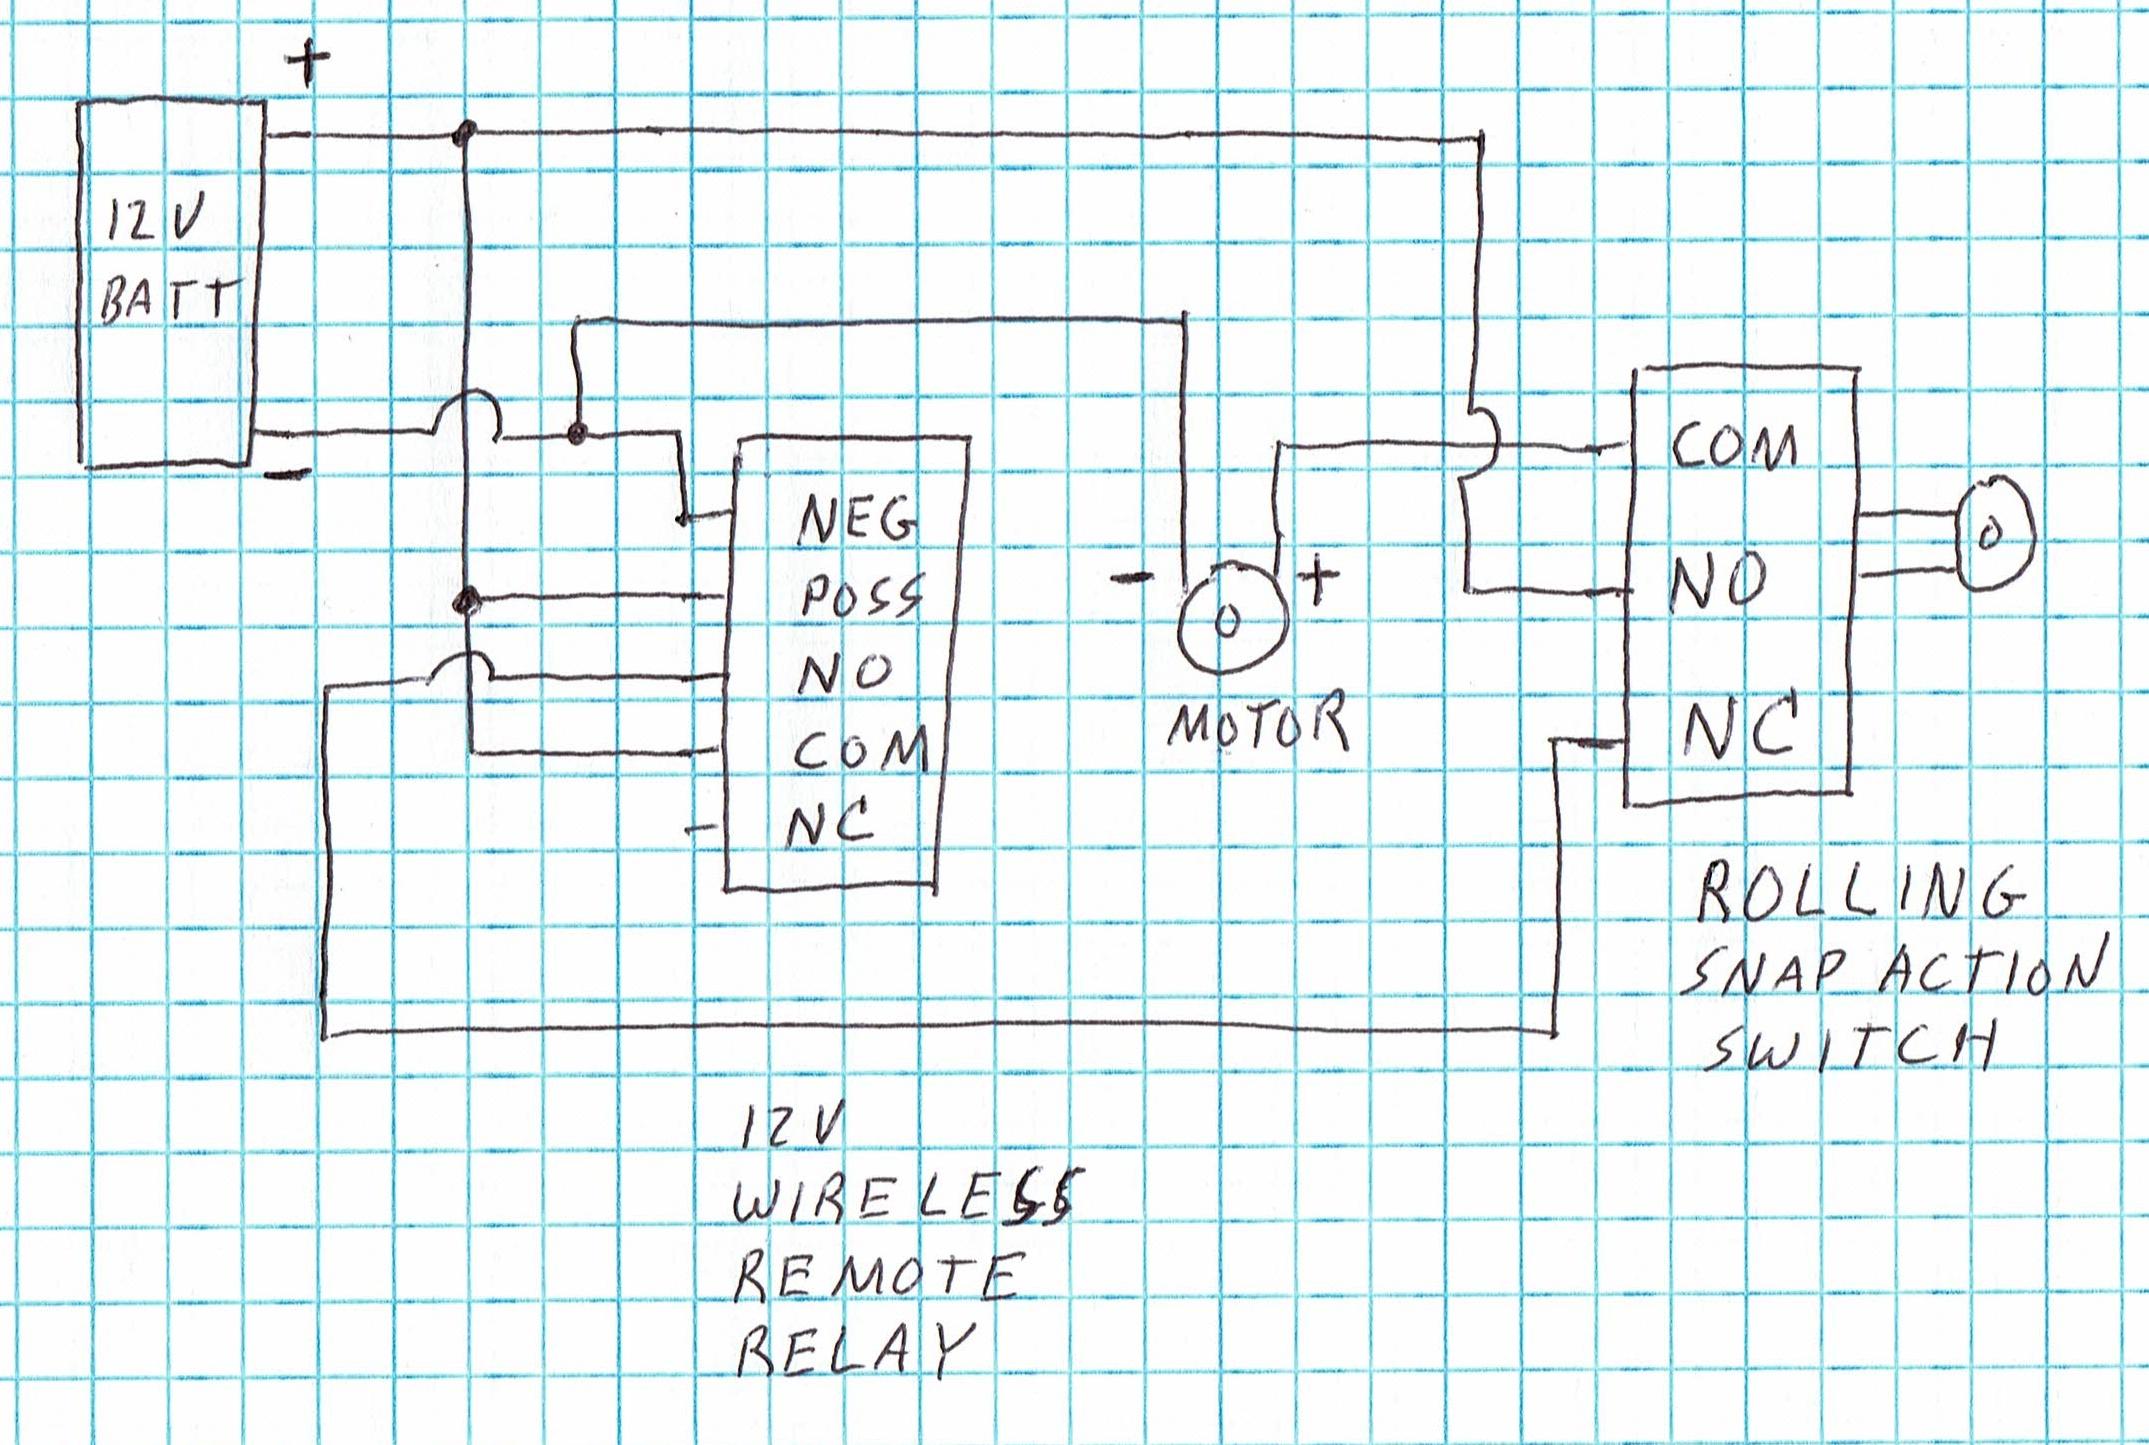 +
12V
BATT
-
NEG
POSS
NO
COM
NC
- +
MOTOR
COM
NO
NC
ROLLING
SNAP ACTION
SWITCH
12V
WIRELESS
REMOTE
RELAY